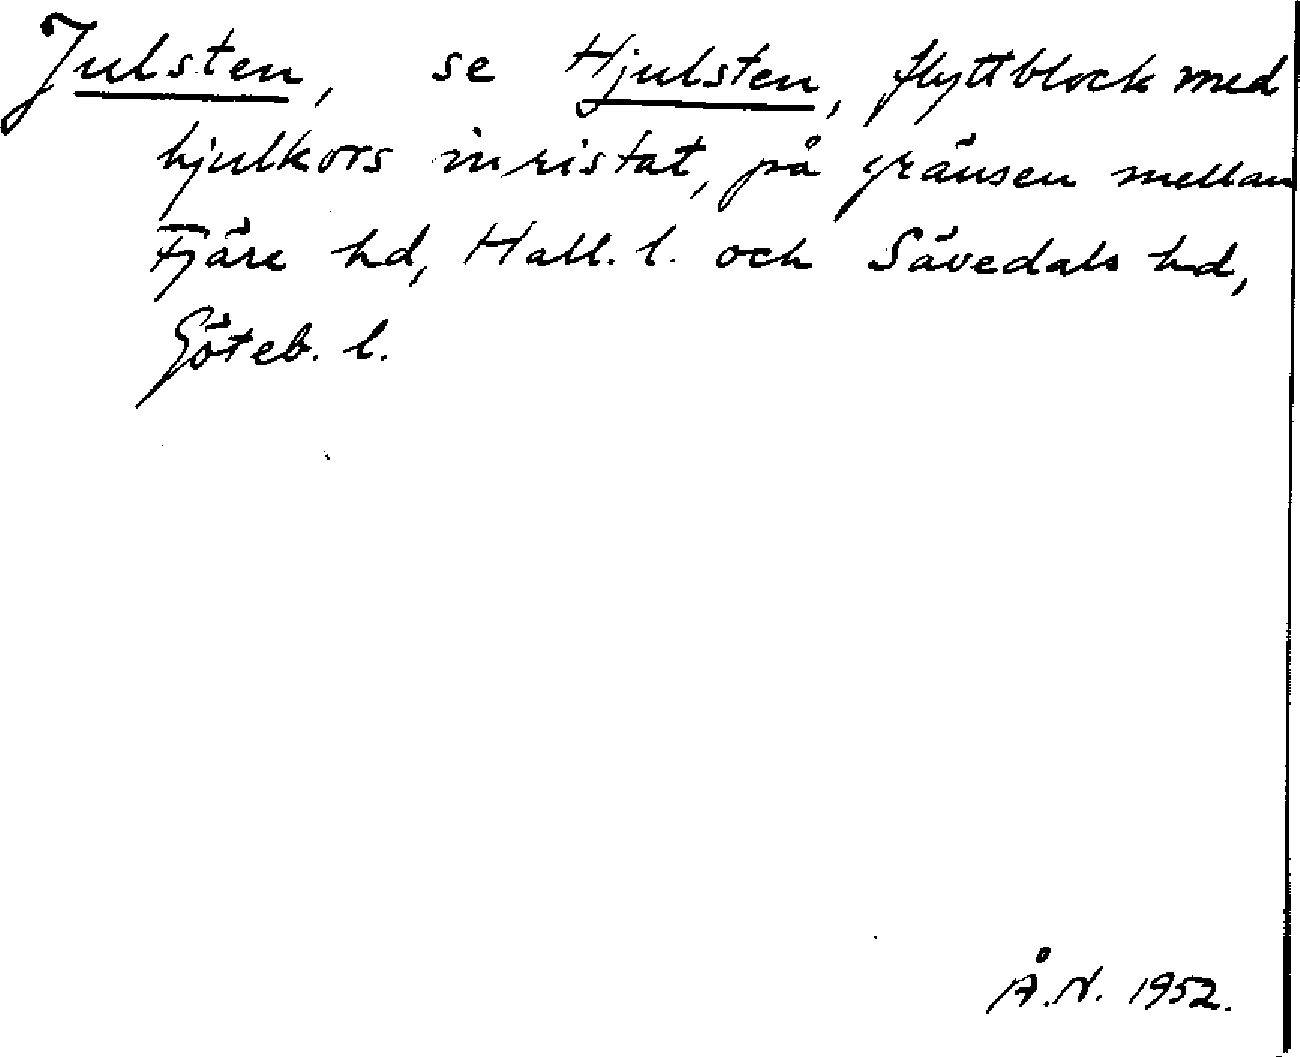 Julsten, se Hjulsten, flyttblock med
hjulkors inristat, på gränsen mellan
Fjäre hd, Hall. l. och Sävedals hd,
Göteb. l.
Å.N. 1952.